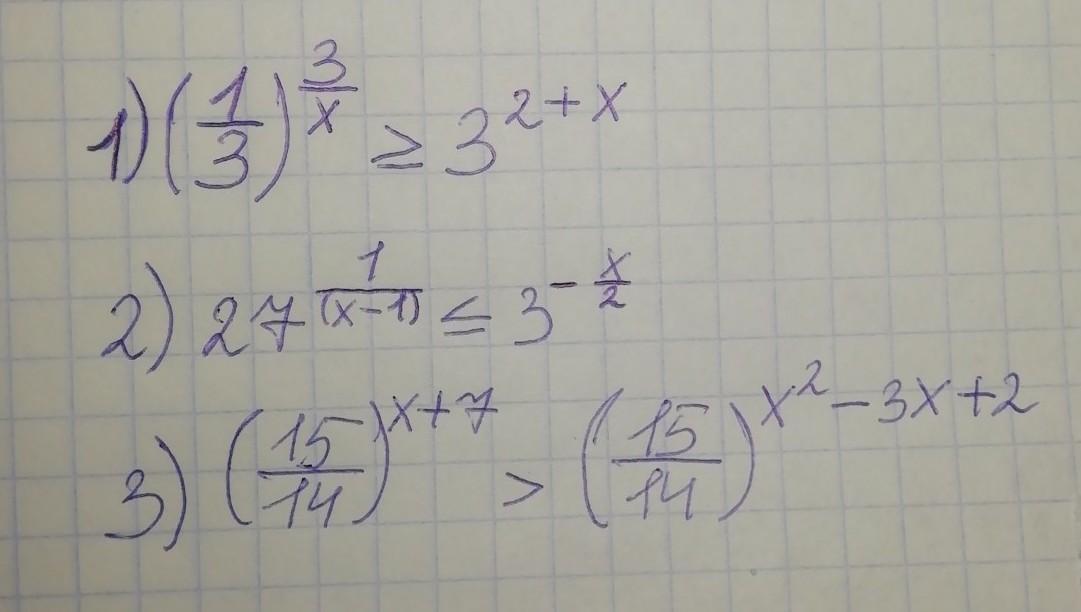 1) (1/3)^(3/x) ≥ 3^(2+x)
2) 27^(1/(x-1)) ≤ 3^(-x/2)
3) (15/14)^(x+7) > (15/14)^(x^2-3x+2)